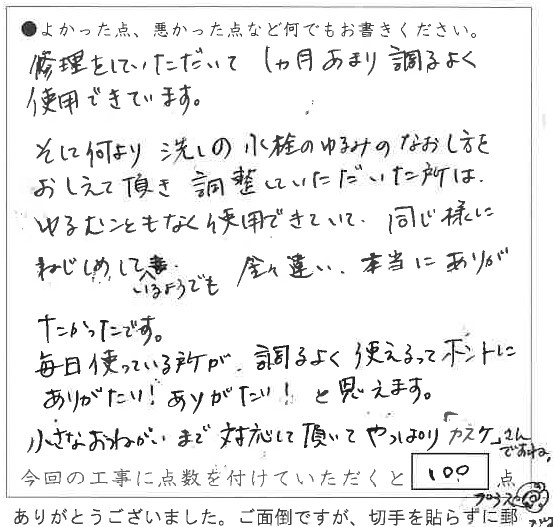 ●よかった点、悪かった点など何でもお書きください。
修理をしていただいて 1ヵ月あまり 調子よく
使用できています。
そして何より 洗しの 水栓のゆるみの なおし方を
おしえて頂き 調整していただいた所は、
ゆるむこともなく 使用できていて、同じ様に
ねじしめして
いるようでも 全々違い、本当に ありが
たかったです。
毎日使っている所が、調子よく 使えるって ホントに
ありがたい! ありがたい! と思えます。
小さなおねがいまで 対応して頂いて やっぱり「カスケ」さん
ですね。
今回の工事に点数を付けていただくと 100 点
プラス@
ありがとうございました。ご面倒ですが、切手を貼らずに郵